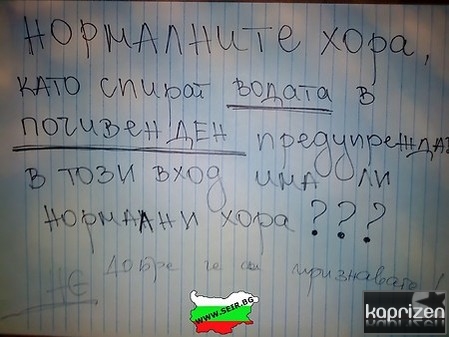 НОРМАЛНИТЕ ХОРА,
КАТО СПИРАТ ВОДАТА В
ПОЧИВЕН ДЕН ПРЕДУПРЕЖДАВ
В ТОЗИ ВХОД ИМА ЛИ
НОРМАЛНИ ХОРА ???
НЕ Добре че си признавате!
WWW.SEIR.BG
kaprizen